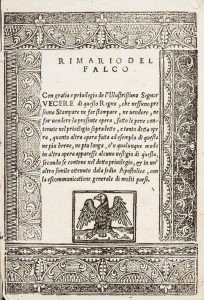 RIMARIO DEL
FALCO.
Con gratia e priuilegio de l'Illustrissimo Segnor
VECERE di questo Regno, che nessimo pre
suma Stampare ne for stampare, ne uendere, ne
for uendere la presente opera, sotto le pene con-
tenute nel priuilegio sopra detto, e tanto detta ope
ra, quanto altra opera fatta ad esempio di questa
ne piu breue, ne piu longa, o'n qualunque modo
in altra opera apparesse alcuno uestigio di questa,
secondo se contene nel detto priuilegio, et in un'
altro simile ottenuto dala sedia Apostolica, con
la escommunicatione generale di molti poesi.